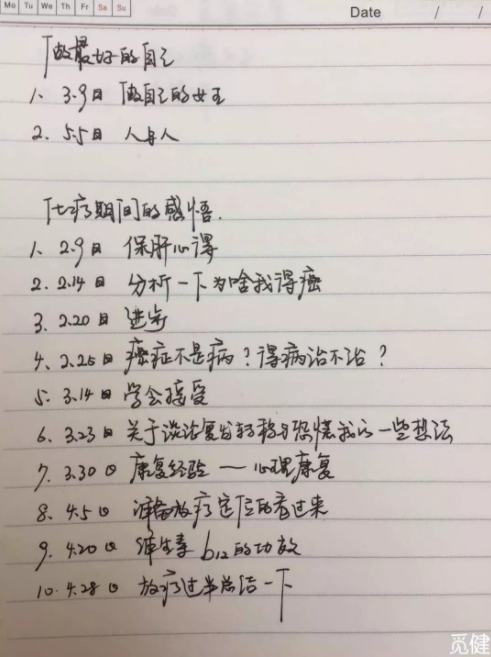 Mo Tu We Th Fr Sa Su
Date / /
做最好的自己
1. 3.9日 做自己的女王
2. 5.5日 人与人
化疗期间的感悟.
1. 2.9日 保肝心得
2. 2.14日 分析一下为啥我得癌
3. 2.20日 进步
4. 2.25日 癌症不是病？得病治不治？
5. 3.14日 学会接受
6. 3.23日 关于谈论复发转移与恐惧我的一些想法
7. 3.30日 康复经验一心理康复
8. 4.5日 准备放疗定位的看过来
9. 4.20日 维生素b12的功效
10. 4.28日 放疗过半总结一下
觅健